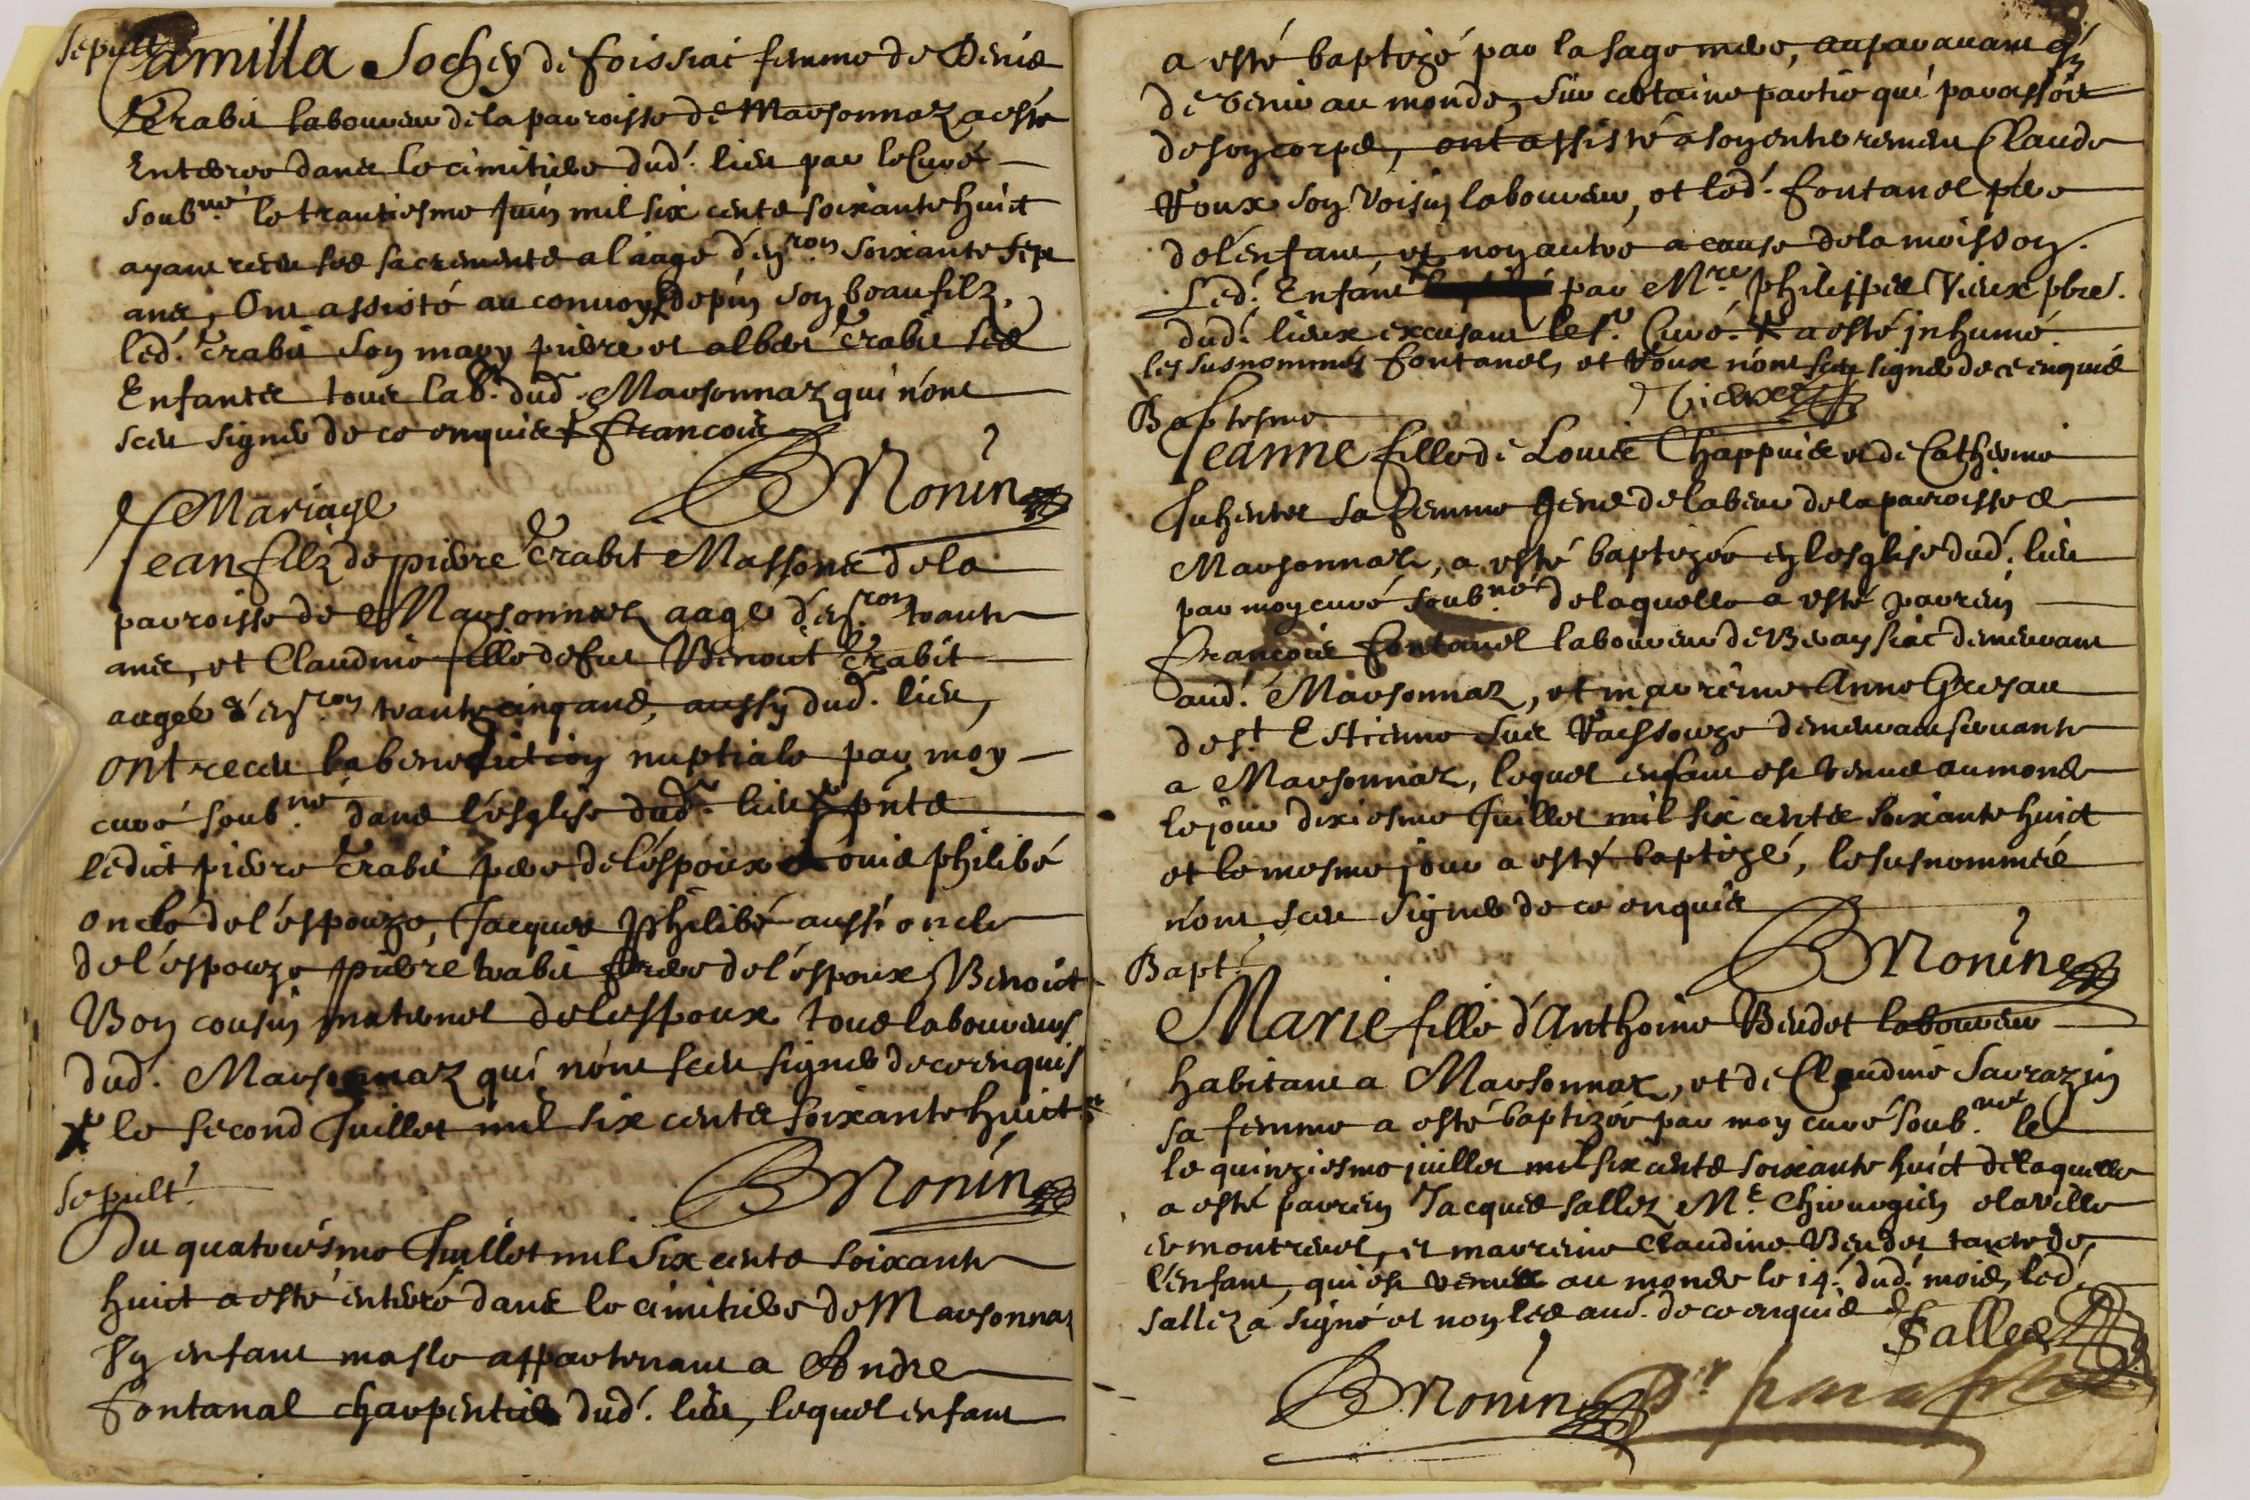 Sepult.
Camilla Sochey de foissiac femme de Denis
Trabit laboureur de la parroisse de Marsonnaz a esté
Enterree dans le cimitiere dud. lieu par le Curé
soub.né le trantiesme Juin mil six cents soixante huict
ayant receu ses sacrements a l'aage d'en.ron soixante sept
ans, Ont assisté au convoy depin son beaufilz,
led. Trabit son mary pierre et albert Trabit ses
Enfants tous lab. dud. Marsonnaz qui n'ont
sceu signer de ce enquis † francois
BMonin
Mariage
Jean filz de pierre Trabit Massons de la
parroisse de Marsonnaz aagé d'en.ron trante
ans, et Claudine fille de fut Benoit Trabit
aagée d'en.ron trante cinq ans, aussy dud. lieu,
ont receu la benediction nuptiale par moy
curé soub.né dans l'esglise dud. lieu † pnts
ledict pierre Trabit pere de l'espoux Louis philibé
oncle de l'espouze, Jacques Philibé aussi oncle
de l'espouze pierre trabit frere de l'espoux, Benoict
Bon cousin maternel de l'espoux tous laboureurs
dud. Marsonnaz qui n'ont sceu signer de ce enquis
† le second Juillet mil six cents soixante huict
BMonin
Sepult.
Du quatriesme Juillet mil six cents soixante
huict a esté enterré dans le cimitiere de Marsonnaz
Un enfant masle appartenant a Andre
Fontanal charpentier dud. lieu, lequel enfant
a esté baptizé par la sage mere, auparavant
de venir au monde, sur certaine partie qui paroissoit
de son corps, ont assisté a son enterrement Claude
Roux son voisin laboureur, et led. fontanel pere
de l'enfant, et non autre a cause de la moisson.
Led. Enfant † par M.re philippes Vieux pbre.
dud. lieux excusant le s.r Curé. † a esté inhumé.
les susnommés fontanel et Roux n'ont sceu signer de ce enquis
Vieux
Baptesme
Jeanne fille de Louis Chappuis et de Catherine
Juhenet sa femme gens de labeur de la parroisse de
Marsonnaz, a esté baptizée en l'esglise dud. lieu
par moy curé soub.né de laquelle a esté parrein
François Fontanel laboureur de Beaysiac demeurant
aud. Marsonnaz, et marreine Anne Gresau
de S.t Estienne sur Raissouze demeurant servante
a Marsonnaz, lequel enfant est venue au monde
le jour dixiesme Juillet mil six cents soixante huict
et le mesme jour a esté baptizé, le susnommés
n'ont sceu signer de ce enquis
BMonin
Bapt.
Marie fille d'Anthoine Beudet laboureur
habitant a Marsonnaz, et de Claudine Sarrazin
sa femme a esté baptizée par moy curé soub.né le
le quinziesme juillet mil six cents soixante huict de laquelle
a esté parrein Jacques sallez M.e Chirurgien a la ville
de montrevel, et marreine Claudine Beudet tante de
l'enfant, qui est venue au monde le 14. dud. mois, led.
sallez a signé et non les aut. de ce enquis
Salles
BMonin